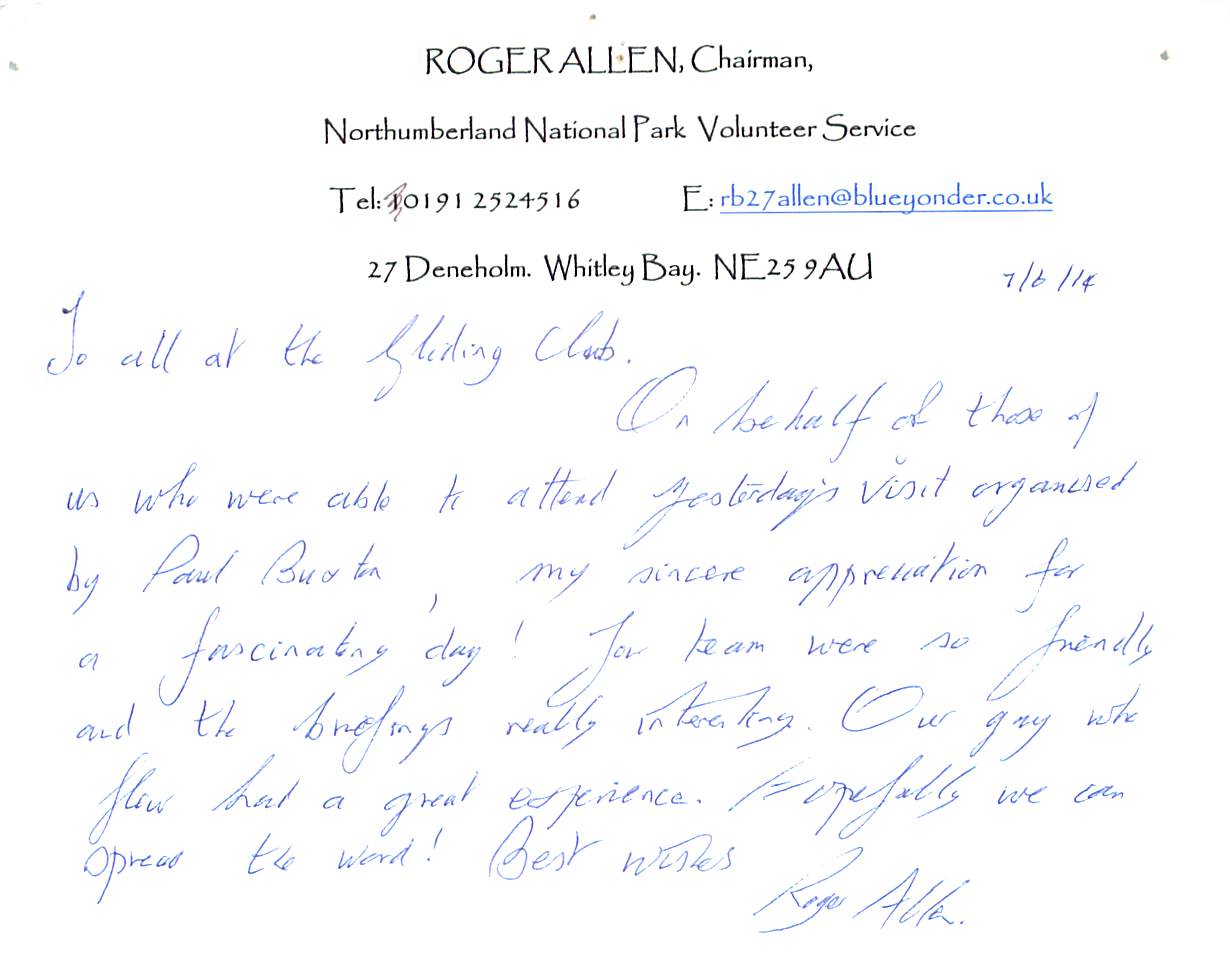 ROGER ALLEN, Chairman,
Northumberland National Park Volunteer Service
Tel: 0191 2524516 E: rb27allen@blueyonder.co.uk
27 Deneholm. Whitley Bay. NE25 9AU
7/6/14
To all at the Gliding Club.
On behalf of those of
us who were able to attend yesterday's visit organised
by Paul Buxton, my sincere appreciation for
a fascinating day! Your team were so friendly
and the briefings really interesting. Our guy who
flew had a great experience. Hopefully we can
spread the word! Best wishes
Roger Allen.